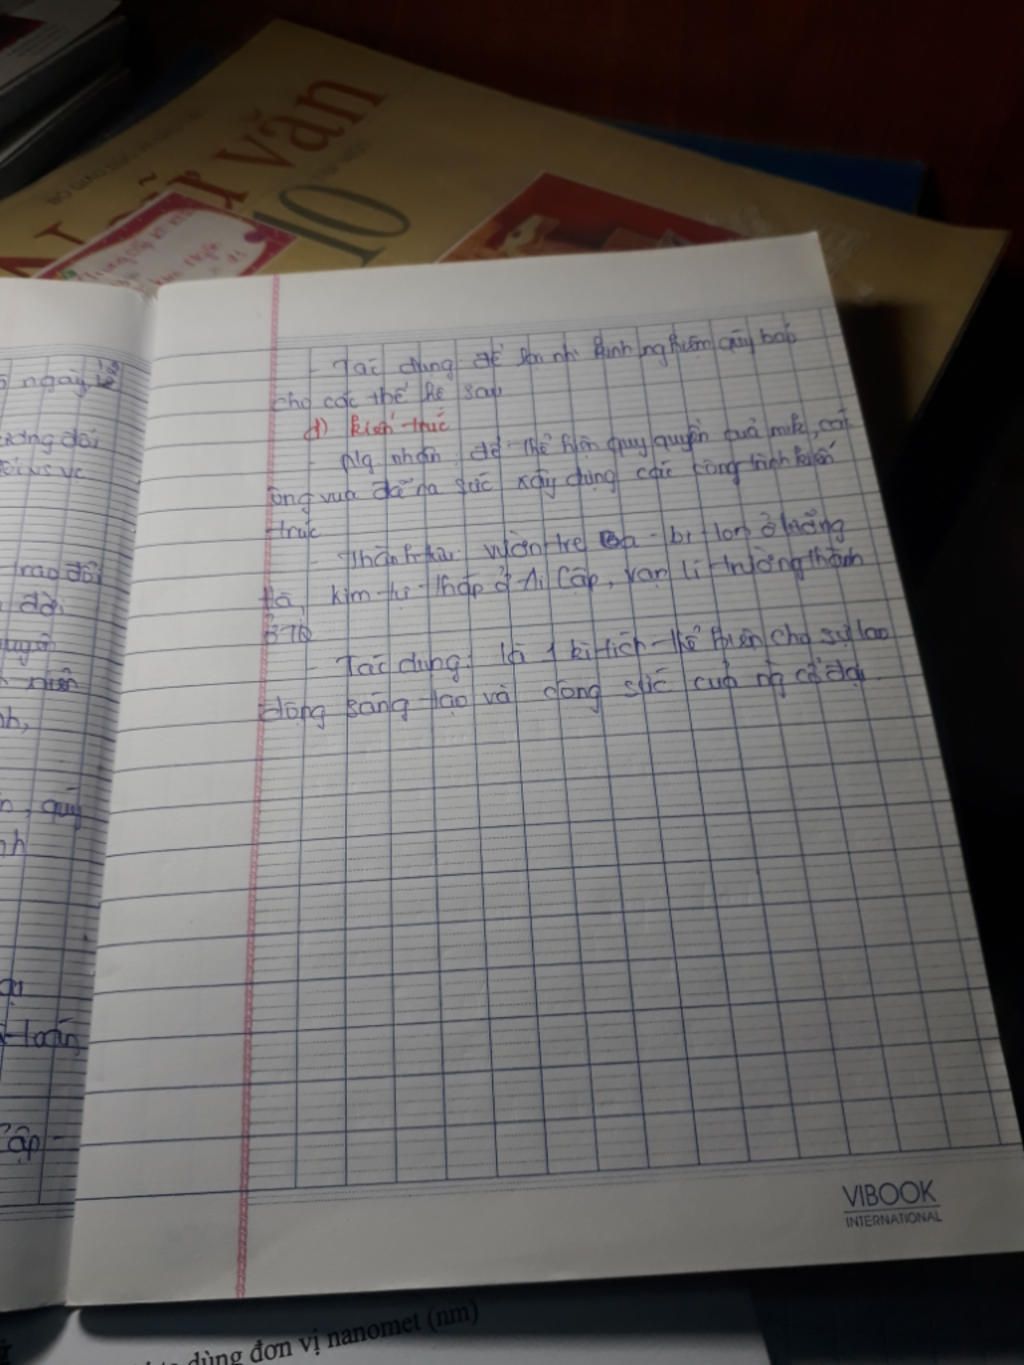 Ngữ văn
10
ngày lễ
ương đối
trao đổi
đời
, quý
nh
Cập -
- Tác dụng: để lại nhi kinh nghiệm quý báu
cho các thế hệ sau
d) kiến trúc
- Ng. nhân: để thể hiện quy quyền của mk, các
ông vua đã ra sức xây dựng các công trình kiến
trúc
- Thành tựu: vườn tre Ba-bi-lon ở lưỡng
Hà, kim tự tháp ở Ai Cập, vạn lí trường thành
ở TQ
- Tác dụng: là 1 kì tích thể hiện cho sự lao
động sáng tạo và công sức của ng cổ đại.
VIBOOK
INTERNATIONAL
dùng đơn vị nanomet (nm)